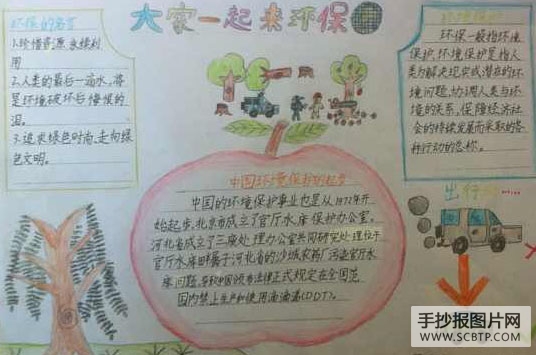 大家一起来环保
环保的名言
1.珍惜资源 永续利
用
2.人类的最后一滴水,将
是环境破坏后悔恨的
泪。
3.追求绿色时尚,走向绿
色文明。
环境保护
环保一般指环境
保护,环境保护是指人
类为解决现实或潜在的环
境问题,协调人类与环
境的关系,保障经济社
会的持续发展而采取的各
种行动的总称。
中国环境保护的起步
中国的环境保护事业也是从1972年开
始起步,北京市成立了官厅水库保护办公室,
河北省成立了三废处理办公室共同研究处理位于
官厅水库畔属于河北省的沙城农药厂污染官厅水
库问题,中国颁布法律正式规定在全国范
围内禁止生产和使用滴滴涕(DDT)。
出行
手抄报图片网
WWW.SCBTP.COM